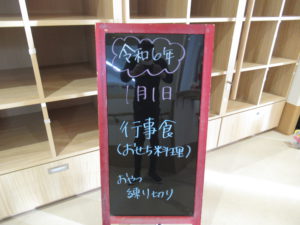 令和6年
1月1日
行事食
(おせち料理)
おやつ
練り切り